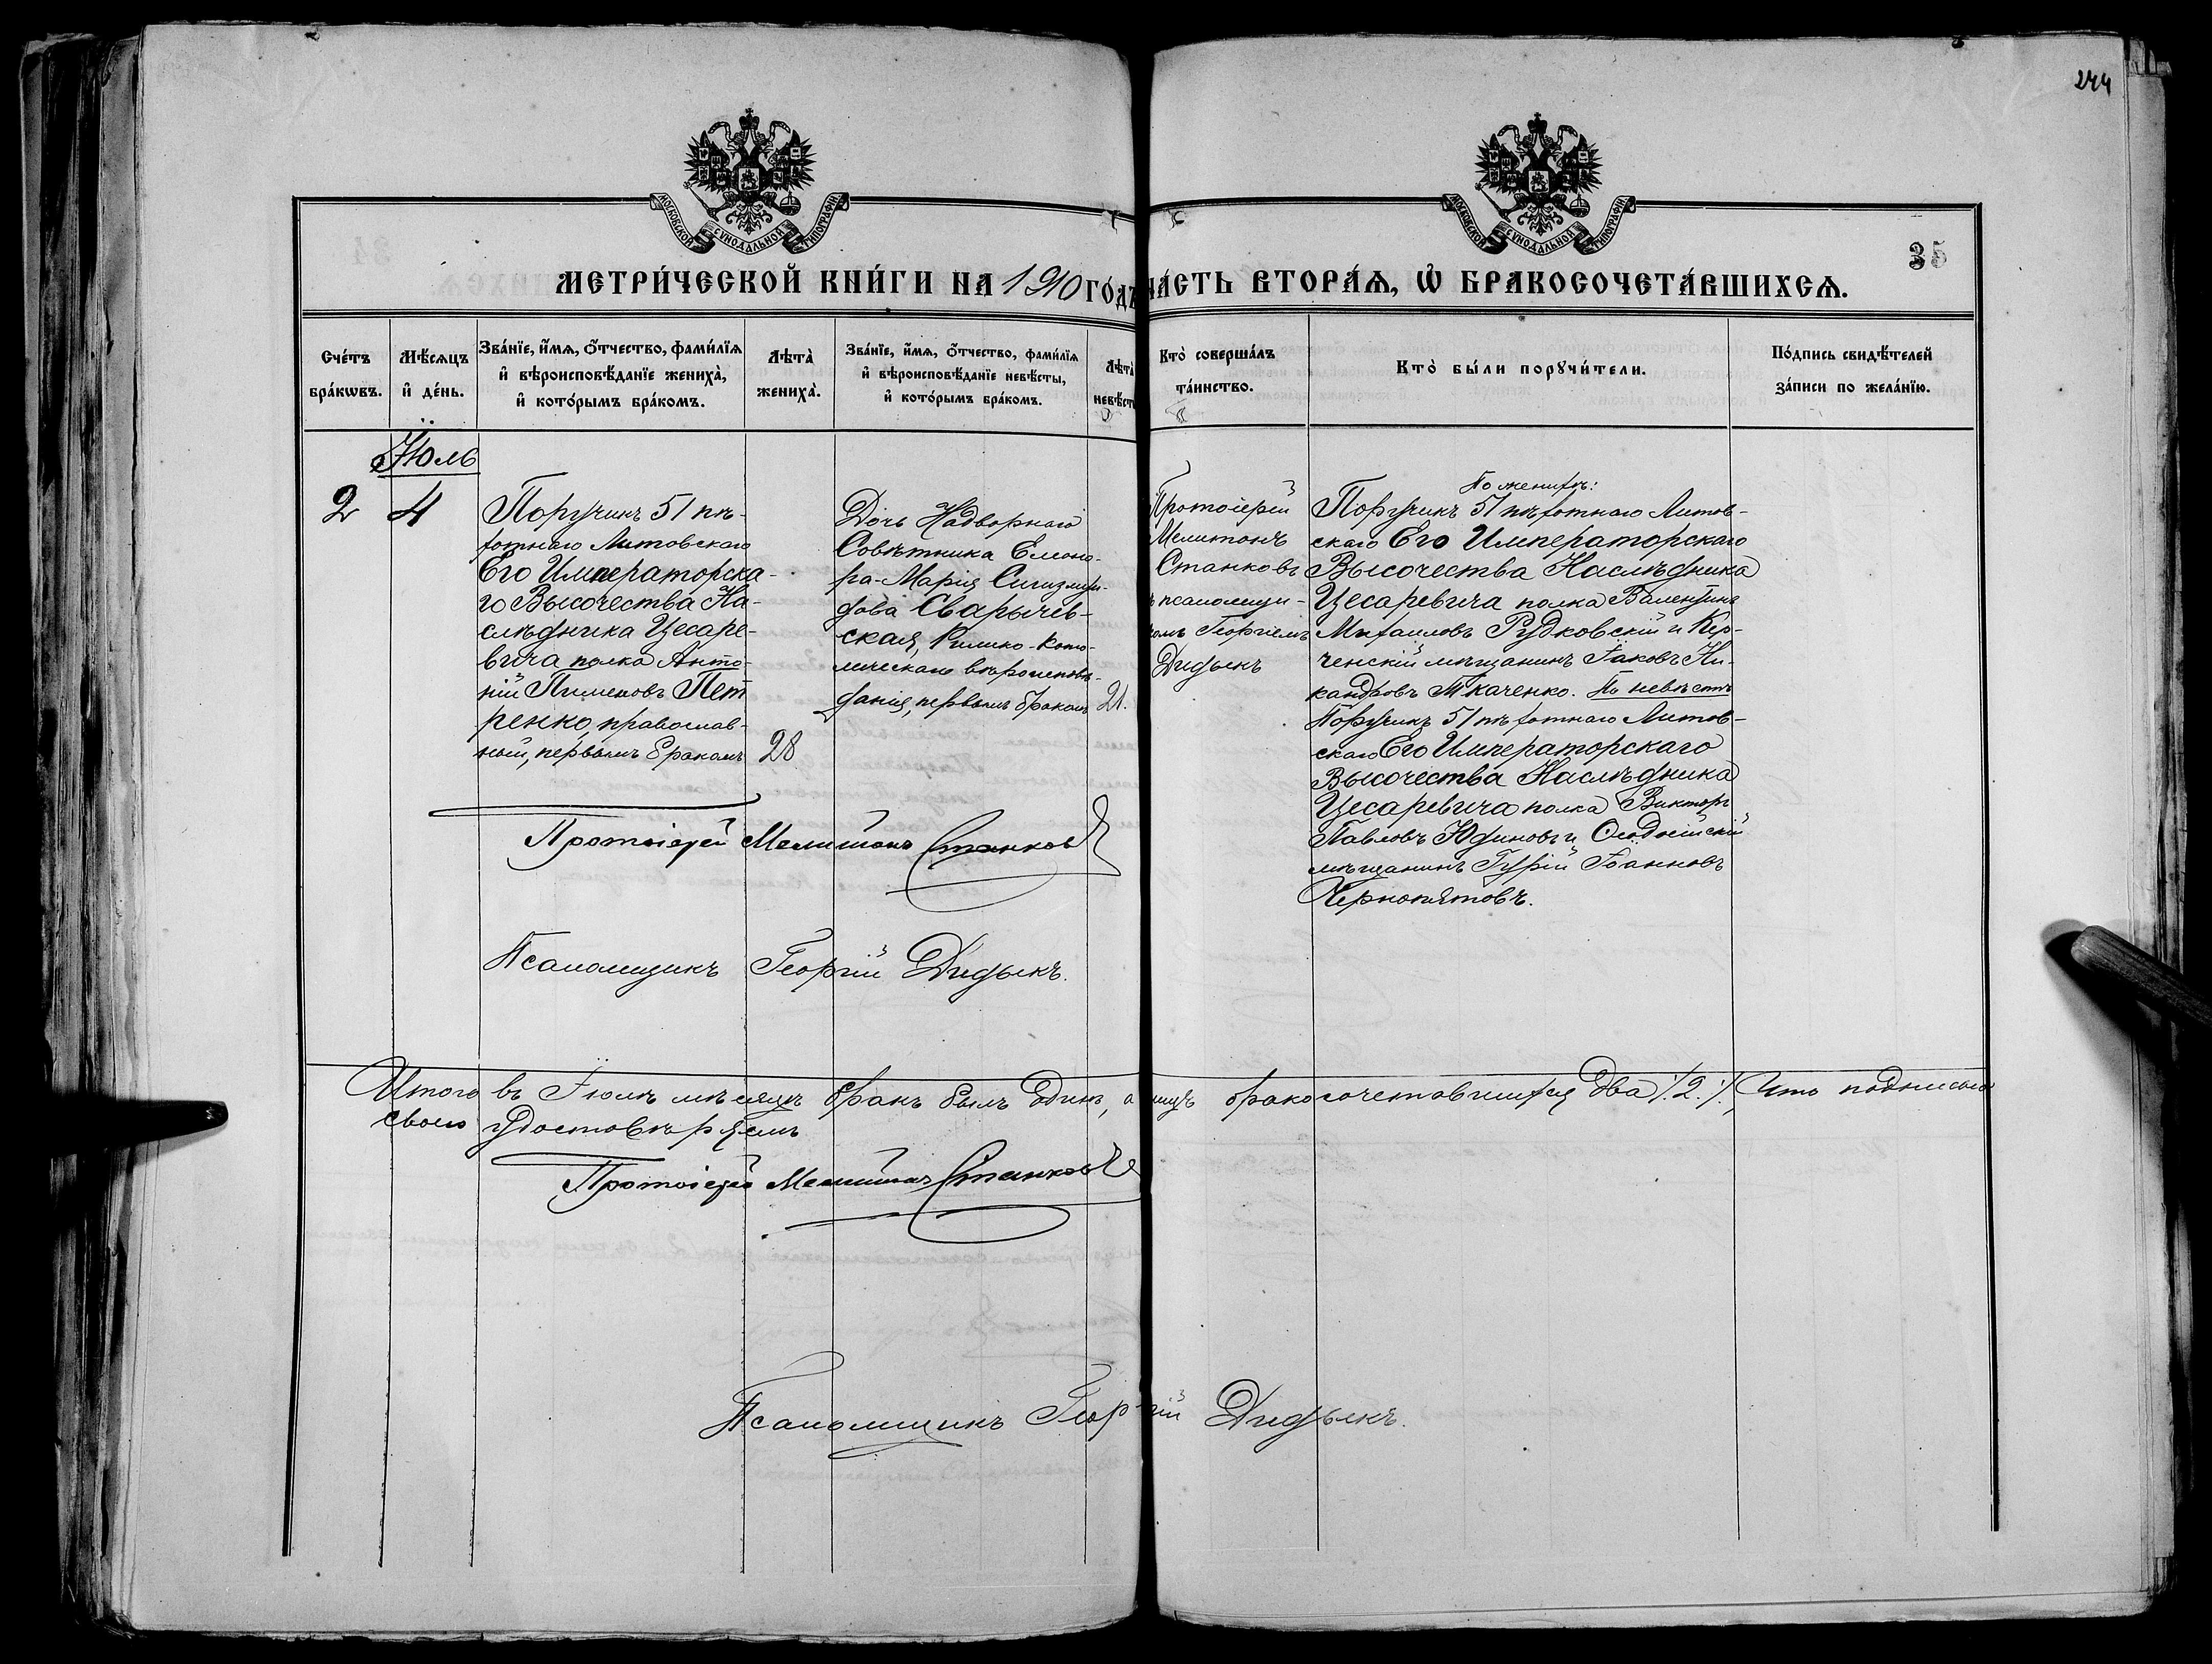 244
МОСКОВСКОЙ СУНОДАЛЬНОЙ ТИПОГРАФІИ
МОСКОВСКОЙ СУНОДАЛЬНОЙ ТИПОГРАФІИ
35
МЕТРИ́ЧЕСКОЙ КНИ́ГИ НА 1910 ГО́ДЪ
ЧА́СТЬ ВТОРА́Ѧ, Ѡ҆ БРАКОСОЧЕТА́ВШИХСѦ.
Сче́тъ
бра́кѡвъ.
Мѣ́сѧцъ
и҆ де́нь.
Зва́нїе, и҆́мѧ, ѻ҆́тчество, фами́лїѧ
и҆ вѣроисповѣ́данїе жениха̀,
и҆ кото́рымъ бра́комъ.
Лѣта̀
жениха̀.
Зва́нїе, и҆́мѧ, ѻ҆́тчество, фами́лїѧ
и҆ вѣроисповѣ́данїе невѣ́сты,
и҆ кото́рымъ бра́комъ.
Лѣта̀
невѣ́сты
Кто̀ соверша́лъ
та́инство.
Кто̀ бы́ли порꙋчи́тели.
По́дпись свидѣ́телей
за́писи по жела́нїю.
Іюль
2
4
Поручикъ 51 пѣ-
хотнаго Литовскаго
Его Императорска-
го Высочества На-
слѣдника Цесаре-
вича полка Анто-
ній Пименовъ Пет
ренко, православ-
ный, первымъ бракомъ
28
Дочь Надворнаго
Совѣтника Елоно-
ра-Марія Сигизмун-
дова Сварычев-
ская, Римско-Като-
лическаго вѣроисповѣ-
данія, первымъ бракомъ
21.
Протоіерей
Мелитонъ
Станковъ
ъ псаломщи-
комъ Георгіемъ
Дидыкъ
По женихѣ:
Поручикъ 51 пѣхотнаго Литов-
скаго Его Императорскаго
Высочества Наслѣдника
Цесаревича полка Валентинъ
Михаиловъ Рудковскій и Кер-
ченскій мѣщанинъ Іаковъ Ни-
кандровъ Ткаченко. По невѣстѣ
Поручикъ 51 пѣхотнаго Литов-
скаго Его Императорскаго
Высочества Наслѣдника
Цесаревича полка Викторъ
Павловъ Юдиновъ и Ѳеодосійскій
мѣщанинъ Гурій Іоанновъ
Чернопятовъ.
Протоіерей Мелитонъ Станковъ
Псаломщикъ Георгій Дидыкъ.
Итого въ Іюлѣ мѣсяцѣ бракъ былъ Одинъ, а лицъ бракосочетавшихся два /.2./., Что подписью
своею удостовѣряемъ
Протоіерей Мелитонъ Станковъ
Псаломщикъ Георгій Дидыкъ.